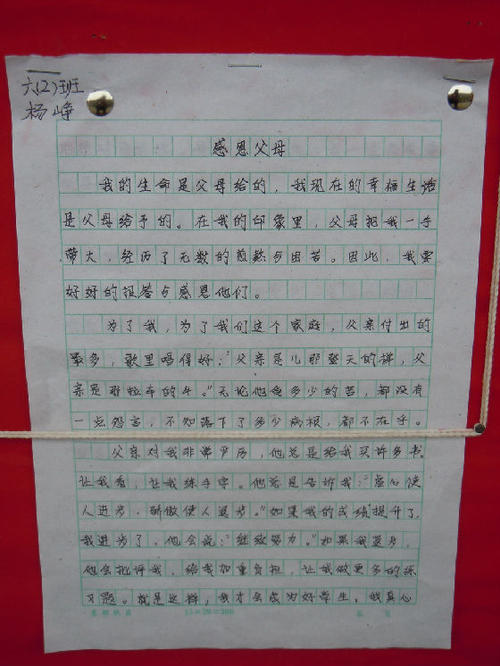 六(2)班
杨峥
感恩父母
我的生命是父母给的，我现在的幸福生活
是父母给予的。在我的印象里，父母把我一手
带大，经历了无数的煎熬与困苦。因此，我要
好好的报答与感恩他们。
为了我，为了我们这个家庭，父亲付出的
最多，歌里唱得好："父亲是儿那登天的梯，父
亲是那拉车的牛。"无论他食多少的苦，都没有
一点怨言，不知落下了多少病根，都不在乎。
父亲对我非常严厉，他总是给我买许多书
让我看，让我练手字。他总是告诉我："虚心使
人进步，骄傲使人退步。"如果我的成绩提升了，
我进步了，他会说："继续努力。"如果我退步，
他会批评我，给我加重负担，让我做更多的练
习题。就是这样，我才会成为好学生，我真心
15×20=300